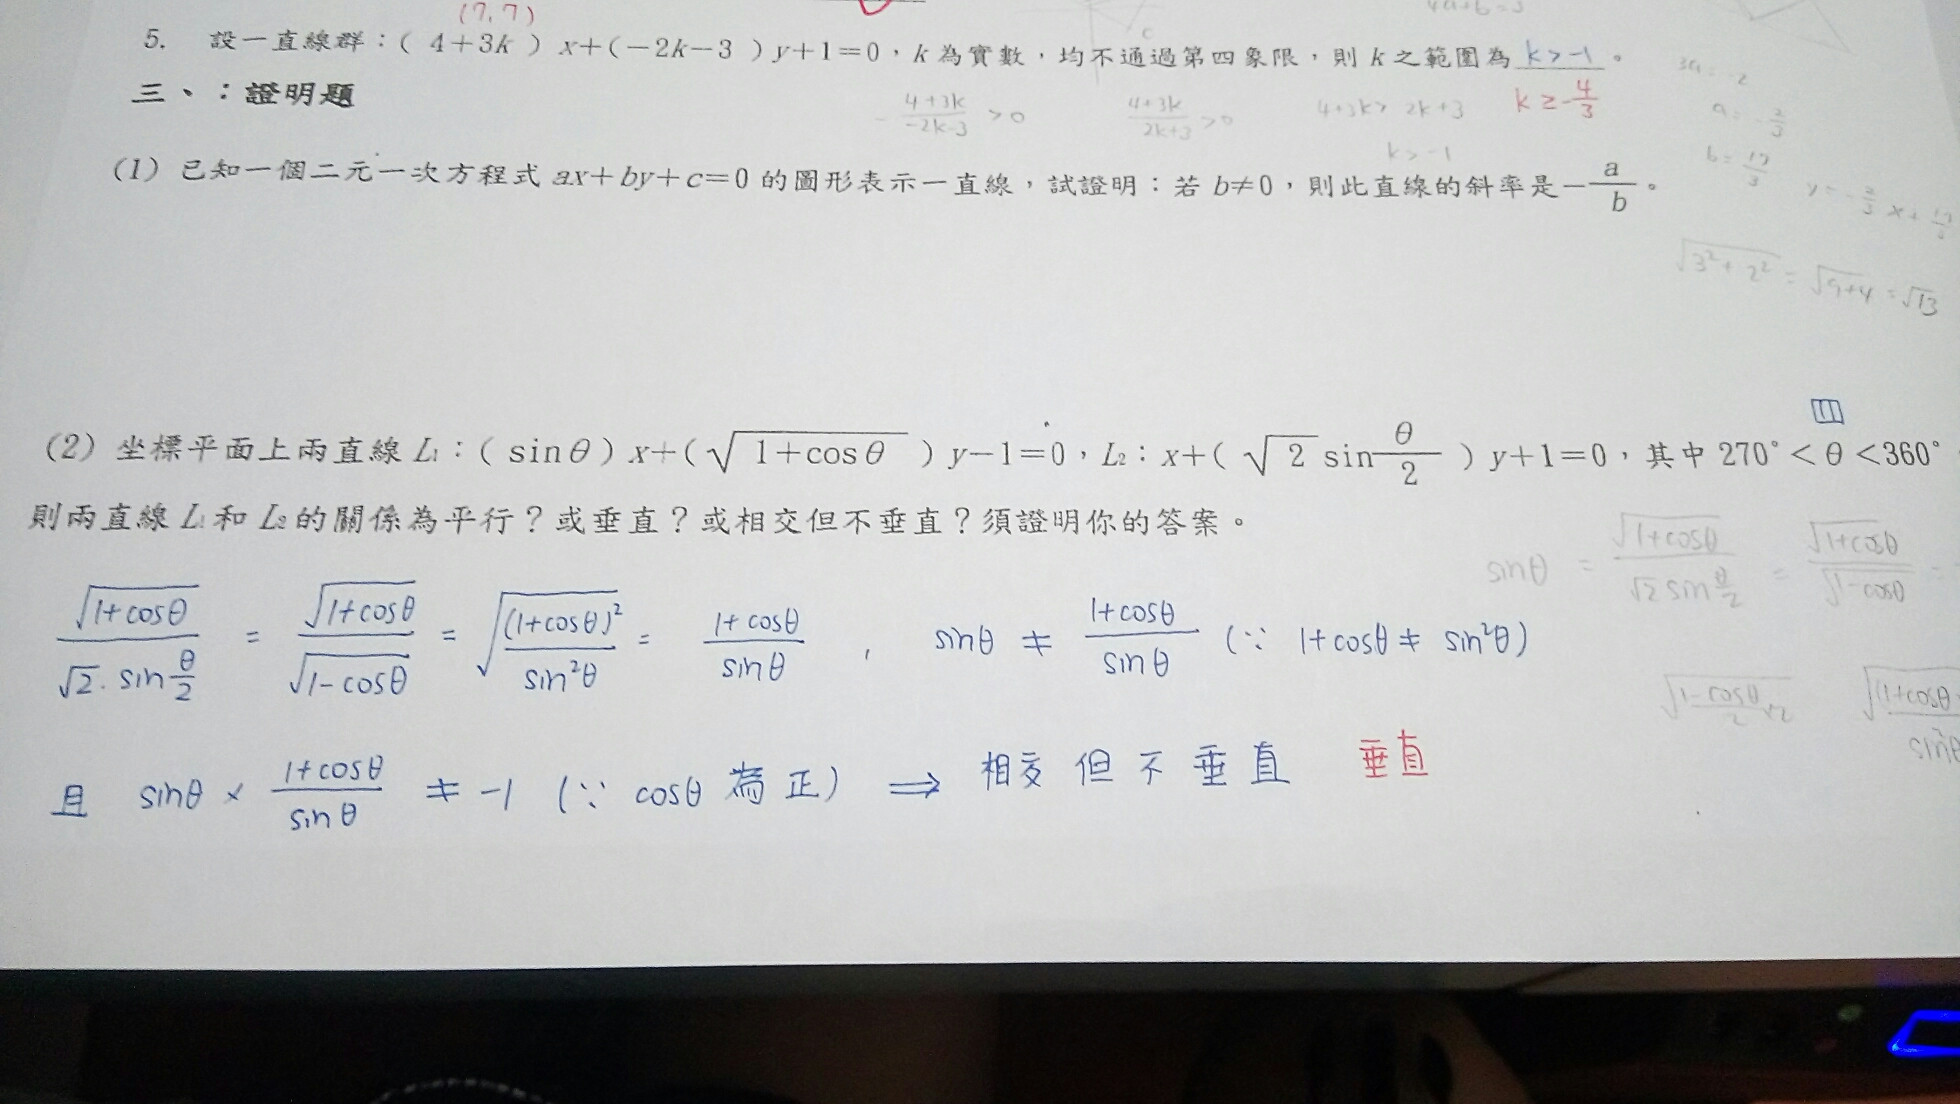 (7,7)
4a+b=3
5. 設一直線群：( 4+3k ) x+(−2k−3 ) y+1=0，k 為實數，均不通過第四象限，則 k 之範圍為 k>-1 。
k≥-4/3
三、：證明題
- (4+3k)/(-2k-3) >0
(4+3k)/(2k+3) >0
4+3k> 2k+3
k>-1
3a=-2
a=-2/3
b=17/3
(1) 已知一個二元一次方程式 ax+by+c=0 的圖形表示一直線，試證明：若 b≠0，則此直線的斜率是−a/b。
√(3²+2²) = √(9+4) = √13
(2) 坐標平面上兩直線 L₁：( sinθ ) x+(√(1+cosθ) ) y−1=0，L₂：x+( √2 sin θ/2 ) y+1=0，其中 270°<θ<360°
則兩直線 L₁ 和 L₂ 的關係為平行？或垂直？或相交但不垂直？須證明你的答案。
sinθ = √(1+cosθ)/(√2 sin θ/2) = √(1+cosθ)/√(1-cosθ) =
√(1+cosθ)/(√2·sin θ/2) = √(1+cosθ)/√(1-cosθ) = √((1+cosθ)²/sin²θ) = (1+cosθ)/sinθ , sinθ ≠ (1+cosθ)/sinθ (∵ 1+cosθ ≠ sin²θ)
且 sinθ × (1+cosθ)/sinθ ≠ -1 (∵ cosθ 為正) ⇒ 相交但不垂直 垂直